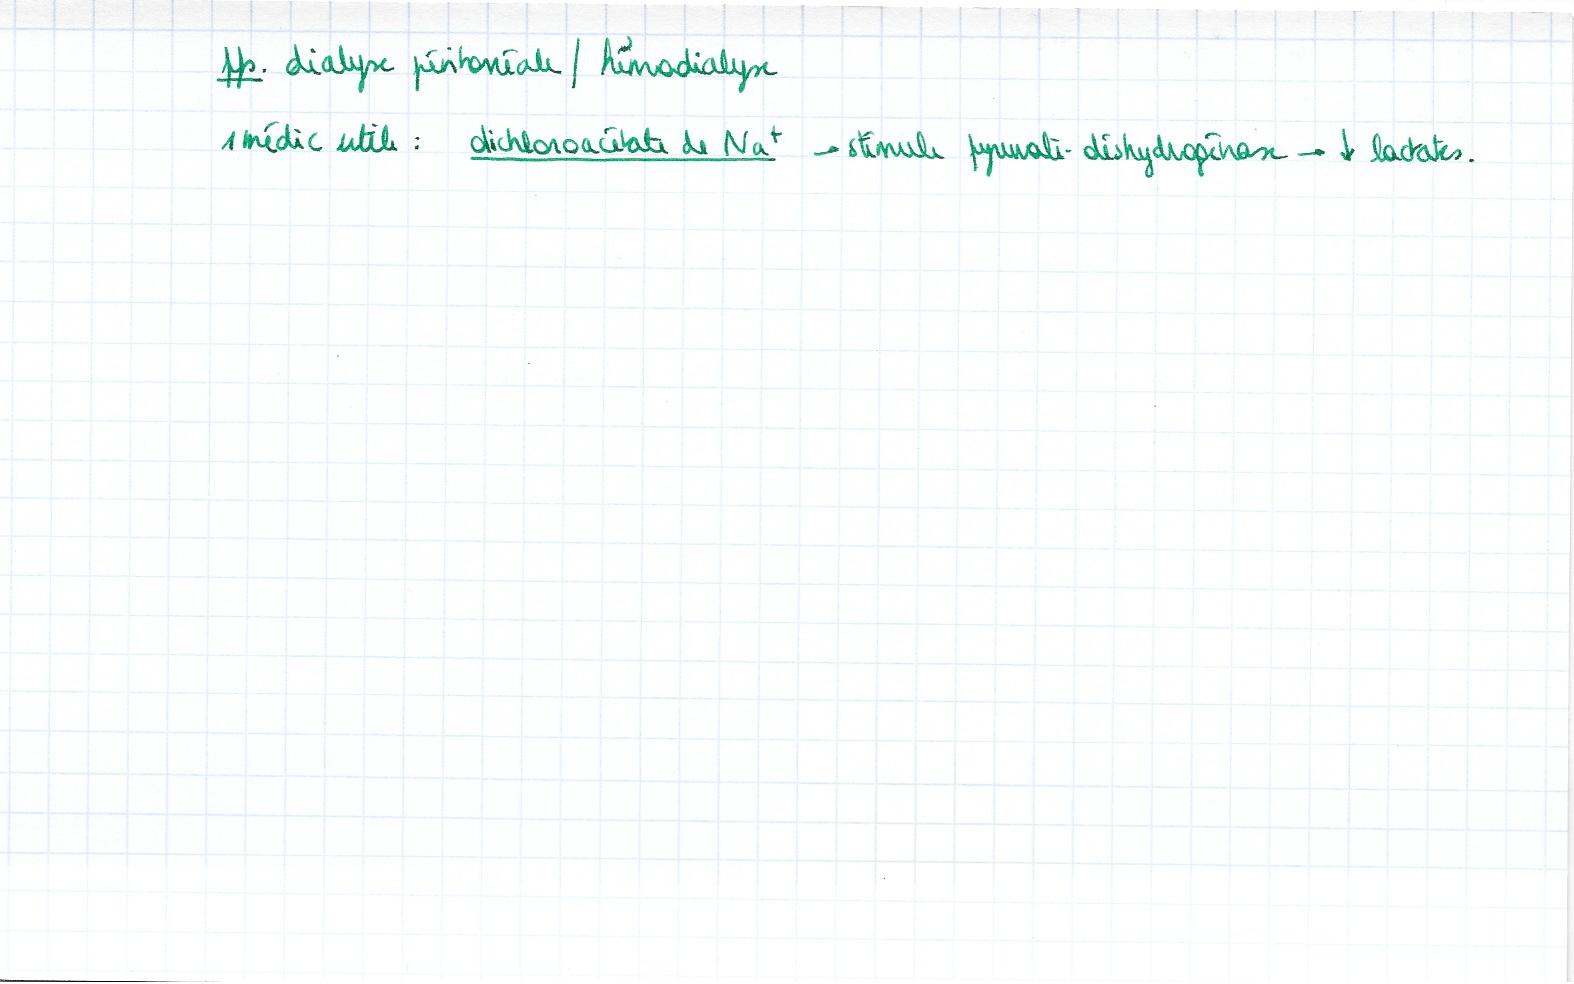 pfs. dialyse péritonéale / hémodialyse
1 médic utile : dichloroacétate de Na⁺ → stimule pyruvate-déshydrogénase → ↓ lactates.